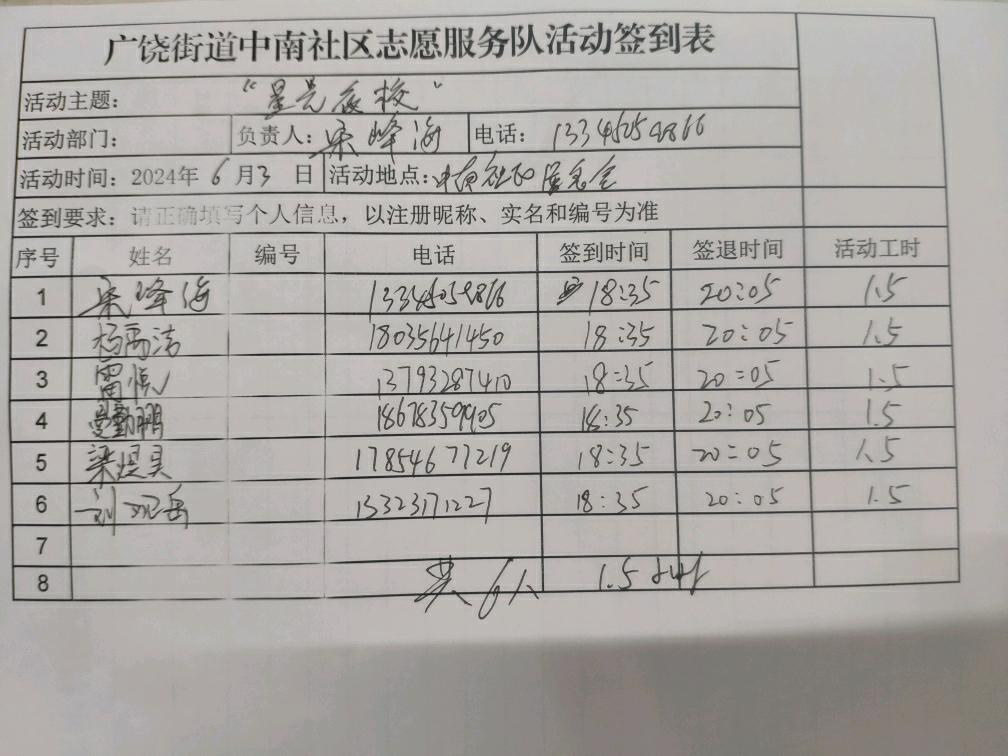 广饶街道中南社区志愿服务队活动签到表
活动主题: “星光夜校”
活动部门: 负责人: 宋峰海 电话:
活动时间: 2024年6月3日 活动地点: 中南社区
签到要求: 请正确填写个人信息，以注册昵称、实名和编号为准
序号 姓名 编号 电话 签到时间 签退时间 活动工时
1 宋峰海 18:35 20:05 1.5
2 杨雨洁 18035641450 18:35 20:05 1.5
3 雷悦 13793287410 18:35 20:05 1.5
4 18678359905 18:35 20:05 1.5
5 梁煜昊 17854677219 18:35 20:05 1.5
6 刘 岳 13323171227 18:35 20:05 1.5
7
8 共6人 1.5小时